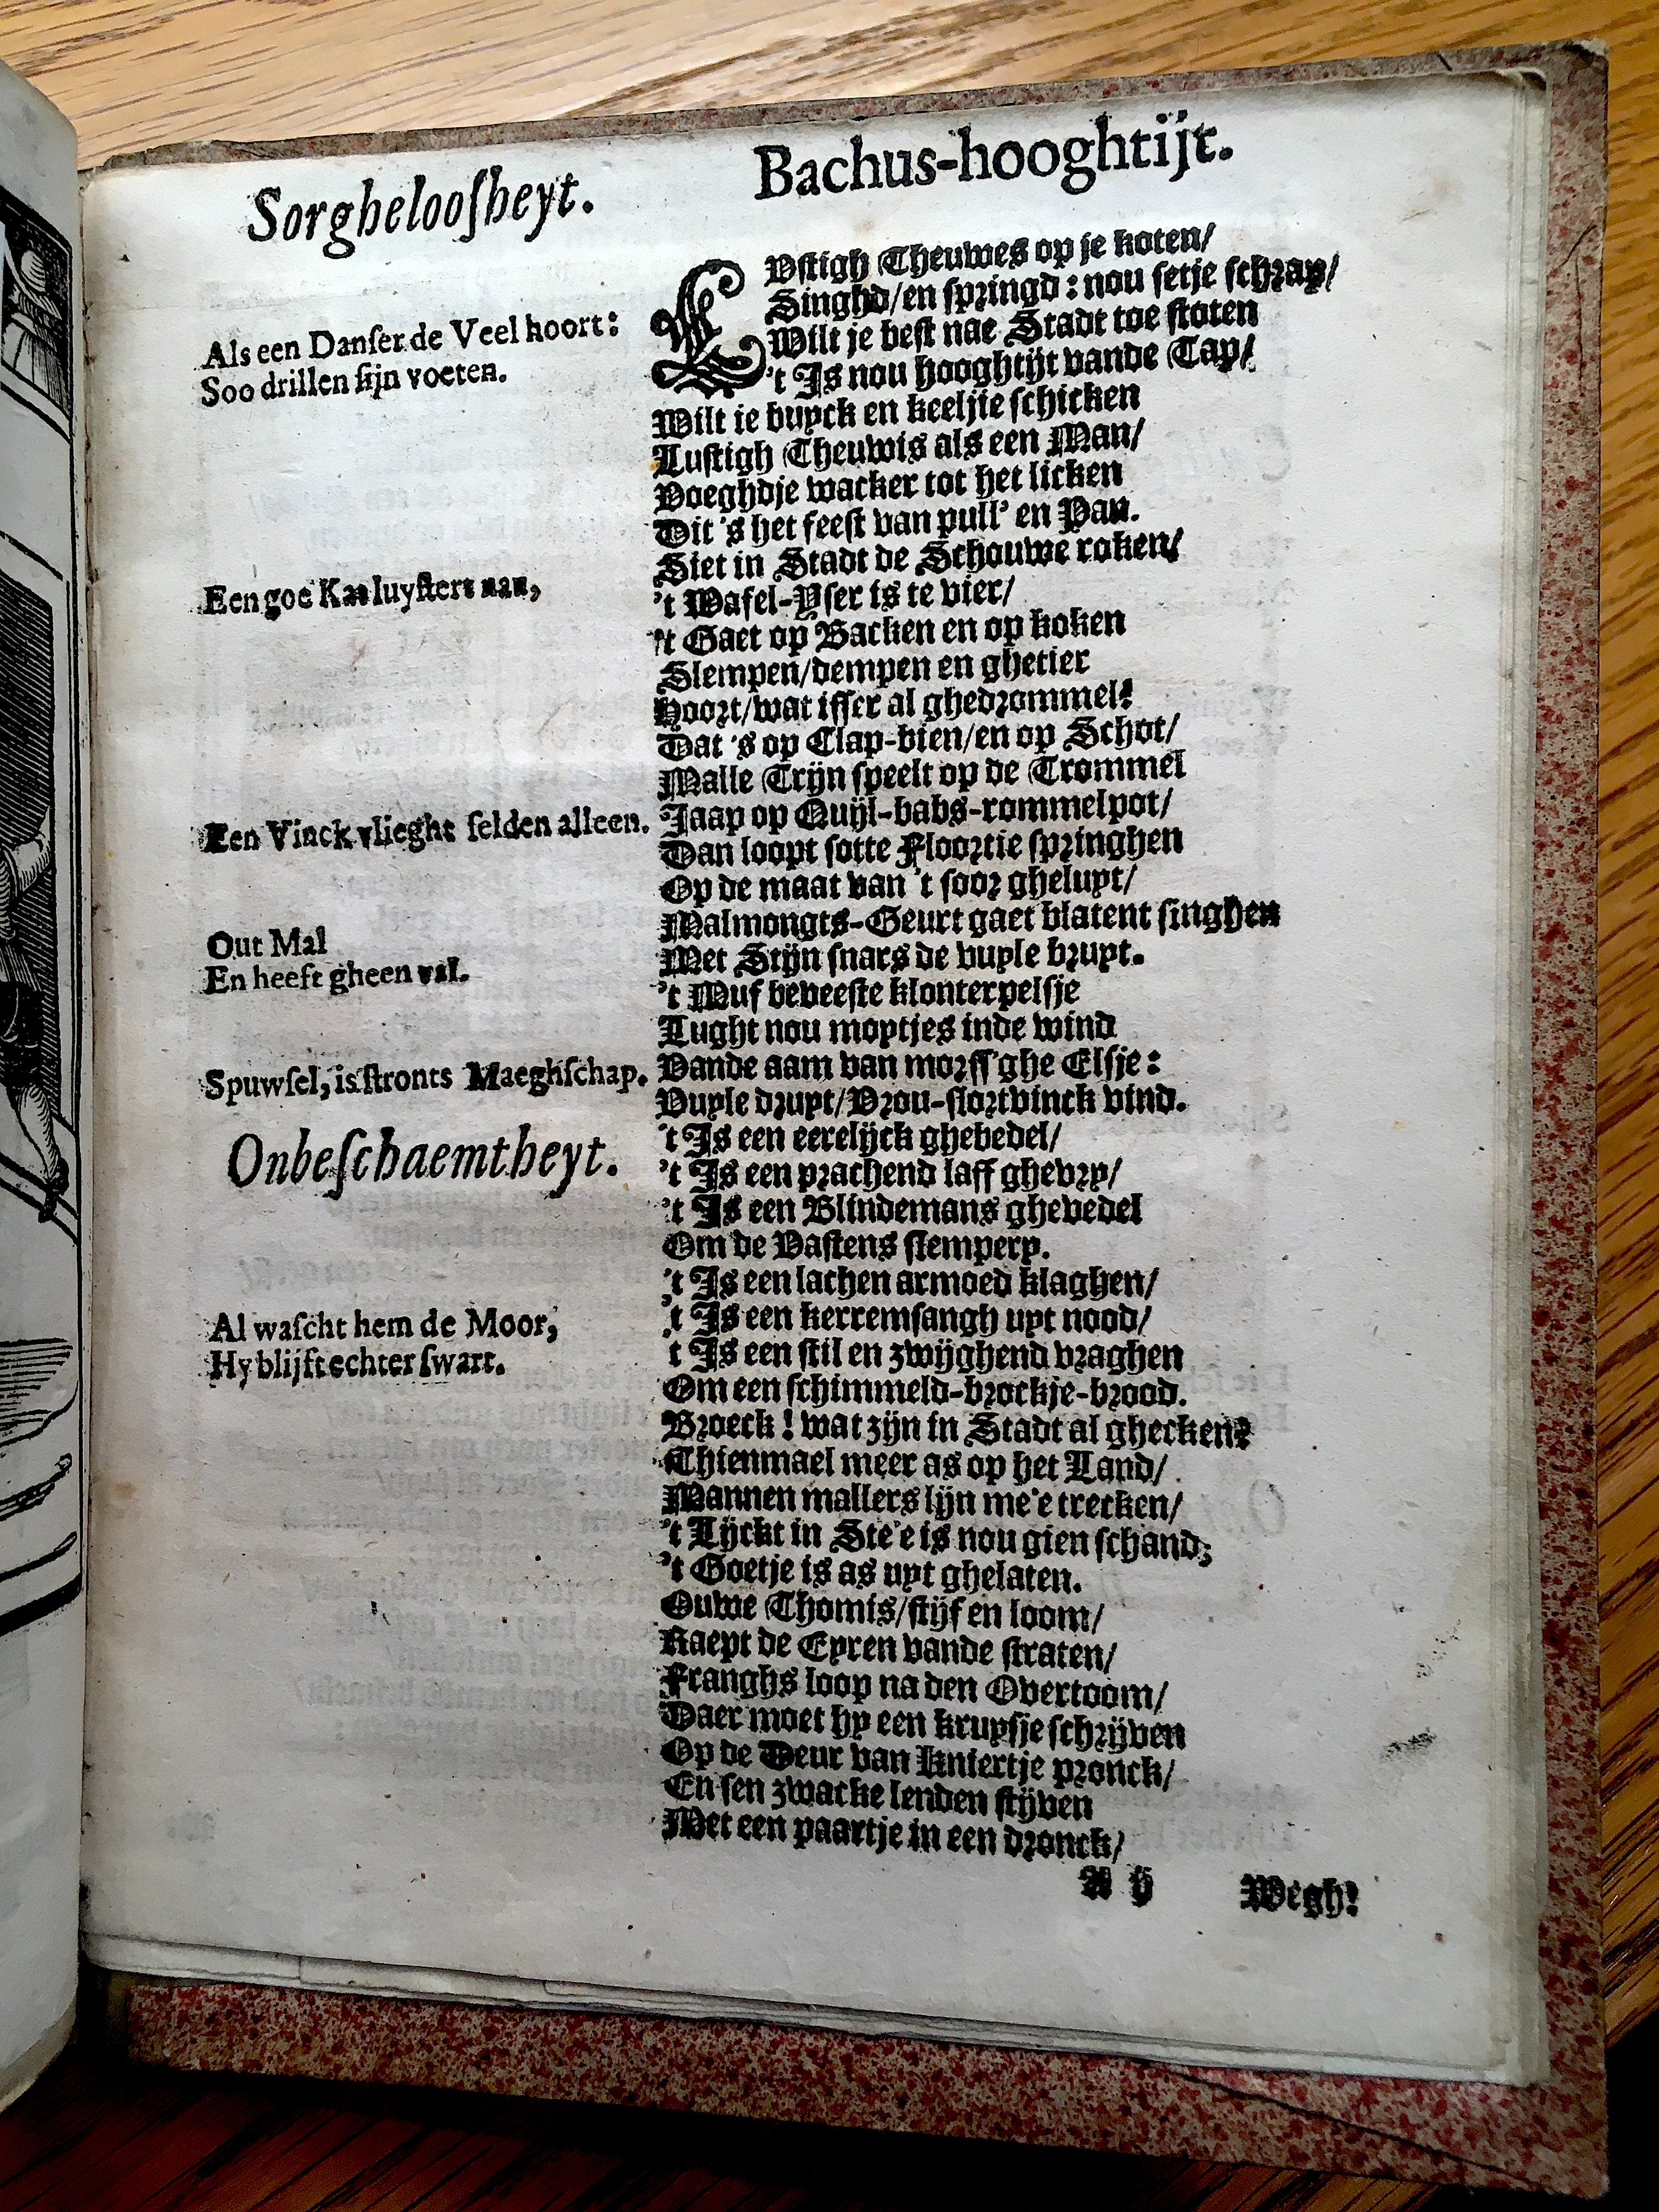 Sorgheloosheyt.
Als een Danser de Veel hoort:
Soo drillen sijn voeten.
Een goe Kat luystert nau,
Een Vinck vlieght selden alleen.
Out Mal
En heeft gheen val.
Spuwsel, is stronts Maeghschap.
Onbeschaemtheyt.
Al wascht hem de Moor,
Hy blijft echter swart.
Bachus-hooghtijt.
LUstigh Theuwes op je koten/
Singhd/en springd: nou setje schrap/
Wilt je best nae Stadt toe stoten
't Is nou hooghtijt vande Tap/
Wilt je buyck en keeljie schicken
Lustigh Theuwis als een Man/
Voeghdje wacker tot het licken
Dit 's het feest van pull' en Pan.
Siet in Stadt de Schouwe roken/
't Wafel-Yser is te vier/
't Gaet op Backen en op koken
Slempen/dempen en ghetier
Hoort/wat isser al ghedrommel?
Dat 's op Clap-bien/en op Schot/
Malle Trijn speelt op de Trommel
Jaap op Quijl-babs-rommelpot/
Dan loopt sotte Floortie springhen
Op de maat van 't soor gheluyt/
Malmongts-Geurt gaet blatent singhen
Met Stijn snars de vuyle bruyt.
't Muf beveeste klonterpelsje
Lught nou moptjes inde wind
Vande aam van morss'ghe Elsje:
Vuyle druyt/Vrou-slortvinck vind.
't Is een eerelijck ghebedel/
't Is een prachend laff ghevry/
't Is een Blindemans ghevedel
Om de Vastens slempery.
't Is een lachen armoed klaghen/
't Is een kerremsangh uyt nood/
't Is een stil en zwijghend vraghen
Om een schimmeld-brockje-brood.
Broeck! wat zijn in Stadt al ghecken?
Thienmael meer as op het Land/
Mannen mallers lijn me'e trecken/
't Lijckt in Ste'e is nou gien schand;
't Goetje is as uyt ghelaten.
Ouwe Thomis/stijf en loom/
Raept de Eyren vande straten/
Franghs loop na den Overtoom/
Daer moet hy een kruysje schrijven
Op de Deur van Kniertje pronck/
En sen zwacke lenden stijven
Met een paartje in een dronck/
A ij
Wegh!